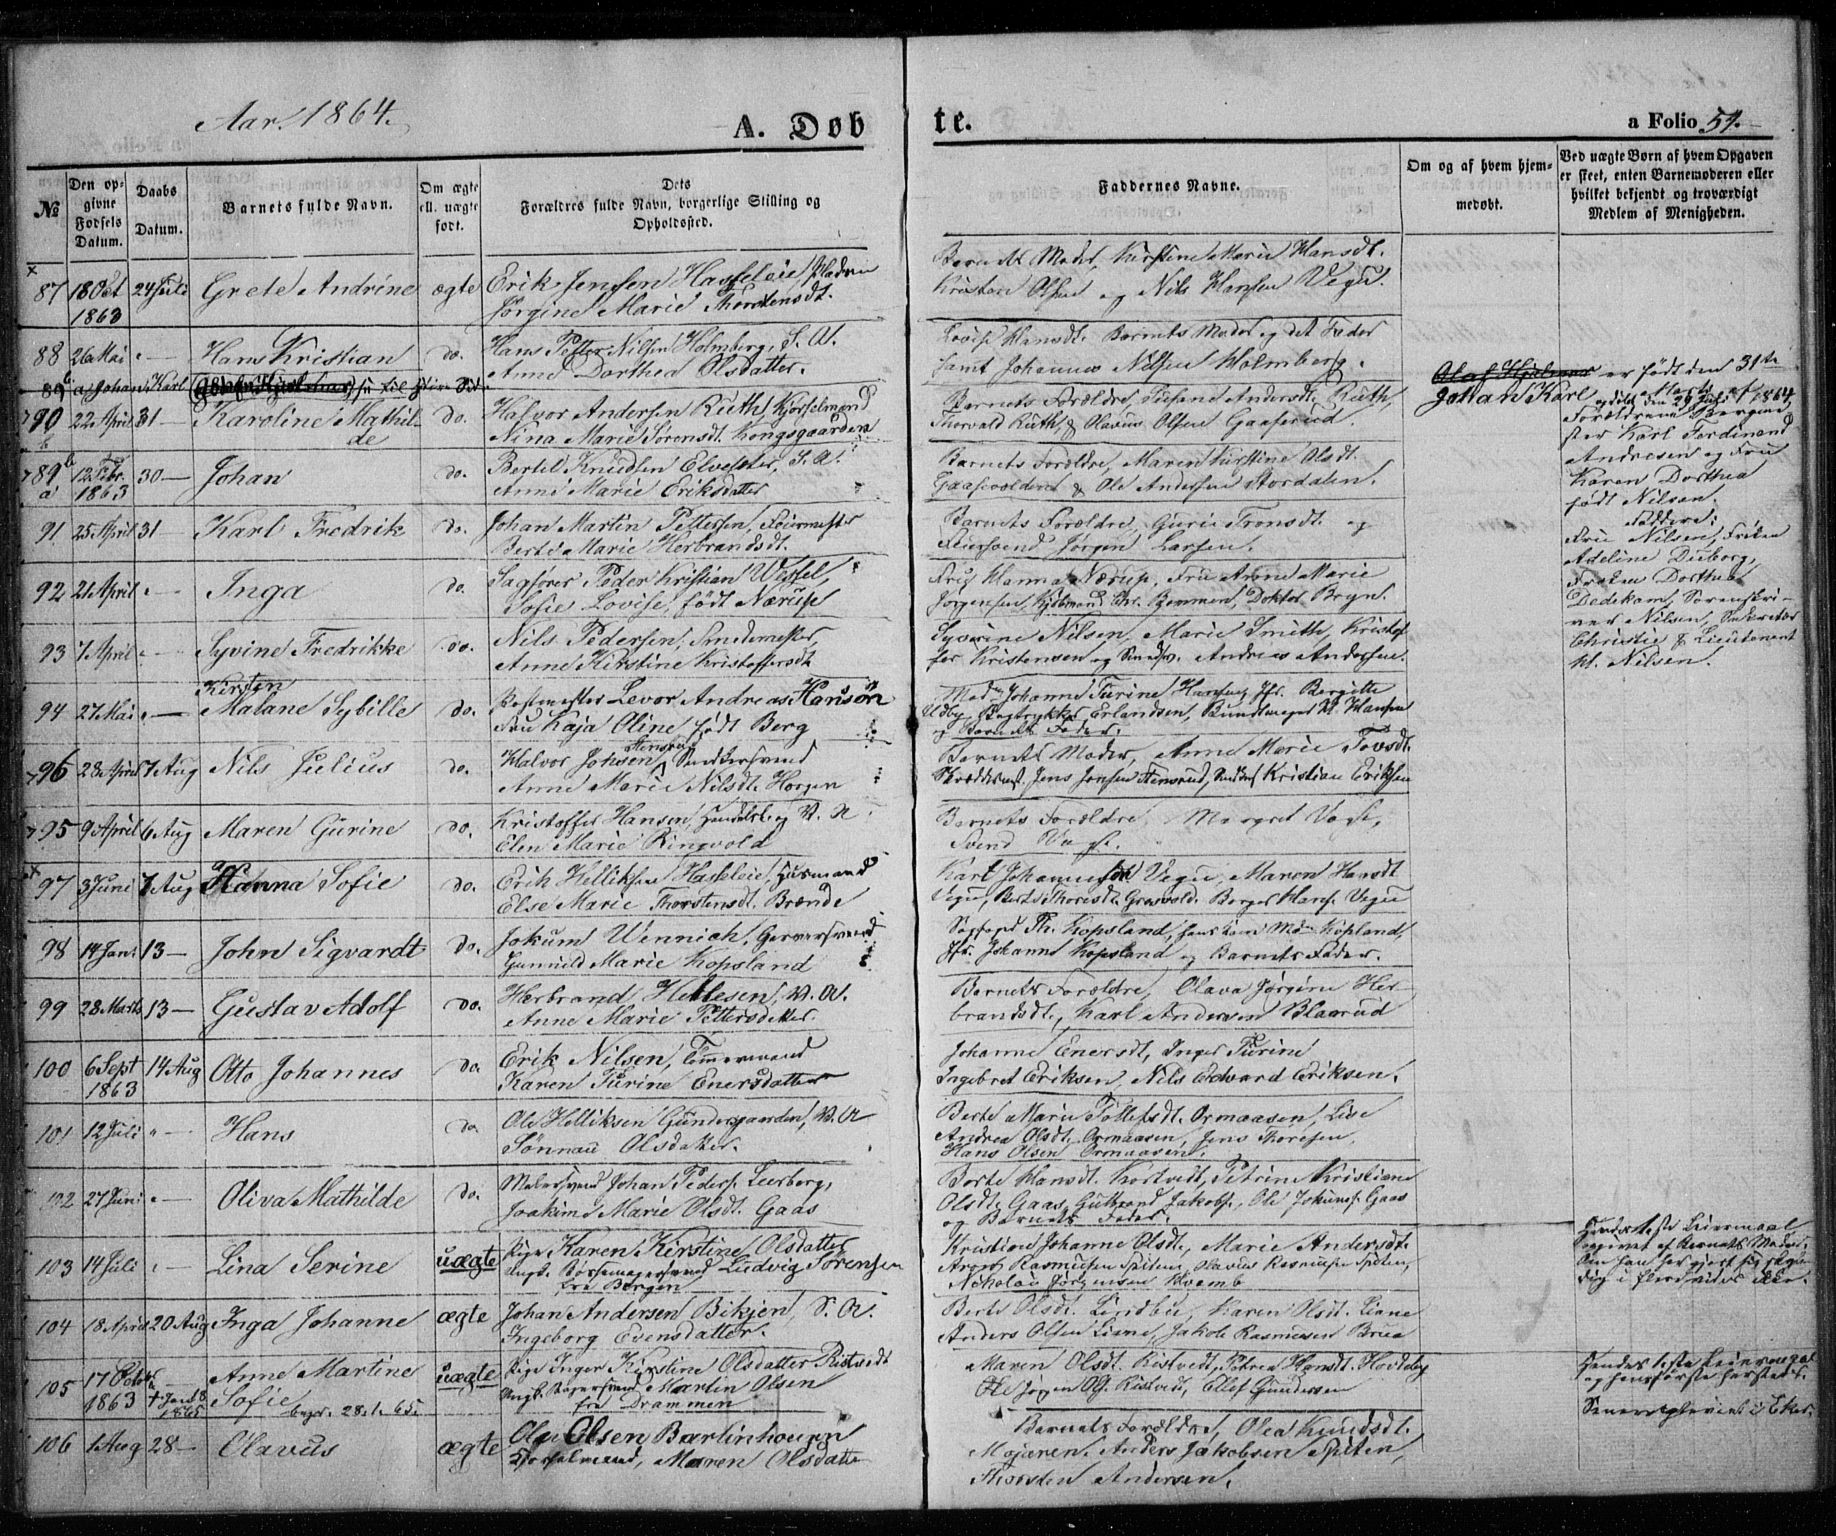 Aar. 1864.
A. Døbte.
a Folio 54.
№
Den opgivne Fødsels Datum.
Daabs Datum.
Barnets fulde Navn.
Om ægte ell. uægte født.
Dets Forældres fulde Navn, borgerlige Stilling og Opholdssted.
Faddernes Navne.
Om og af hvem hjemmedøbt.
Ved uægte Børn af hvem Opgaven er skeet, enten Barnemoderen eller hvilket bekjendt og troværdigt Medlem af Menigheden.
87 18 Oct 1863 24 Juli Grete Andrine ægte Erik Jensen Hasseleie
Jørgine Marie Thorstensdt.
Barnets Moder, Kirstine Marie Hansdt.
Kristen Olsen og Nils Hansen Vegu.
88 26 Mai Hans Kristian do. Hans Petter Nilsen Holmberg, S. A.
Anne Dorthea Olsdatter.
Lovise Hansdt. Barnets Moder og det Fader
samt Johannes Nilsen Holmberg.
89 b a/ Johan Karl
Johan Karl er født den 31te Marts
Forældrene Bergme
ster Karl Ferdinand
Andresen og Frue
Karen Dorthea
født Nilsen.
Faddere:
Frue Nilsen, Frøken
Adeline Dieborg,
Frøken Dorthea
Dedekam, Sorenskri-
ver Nilsen, Sekretær
Christie & Lieutenant
Kl. Nilsen.
90 b 22 April 31 — Karoline Mathilde do. Halvor Andersen Ruth, Kjørselmand
Nina Marie Sørensdt. Kongsgaarden
Barnets Forældre, Andersdt. Ruth,
Thorvald Ruth, & Olavus Olsen Gaaserud.
89 b a 12 Febr. 1863 30 — Johan do. Bertel Knudsen Elveseter, S. A.
Anne Marie Eriksdatter
Barnets Forældre, Maren Kirstine Olsdt.
& Ole Andersen Stordalen.
91 25 April 31 Karl Fredrik do. Johan Martin Pettersen, Feiermester
Berte Marie Herbrandsdt.
Barnets Forældre, Gurie Tronsdt. og
Feiersvend Jørgen Larsen.
92 21 April Inga do. Sagfører Peder Kristian Wessel,
Sofie Lovise, født Nærup
Frue Hanna Nærup, Fru Anne Marie
Jørgensen, Kjøbmand Chr. Bemmen, Doktor Bryn.
93 7 April Syvine Fredrikke do. Nils Pedersen, Smedmester,
Anne Kirstine Kristoffersdt
Syverine Nilsen, Marie Smith, Kristof
fer Kristensen og Smedsv. Andreas Andersen.
94 27 Mai Kirsten
Malane Sybille do. Postmester Levor Andreas Hansøn
Fru Kaja Oline født Berg
Mad. Johanne Turine Hansen, Jfr. Bergitte
Udby, Bogtrykker Erlandsen, Bundtmager Kl. Hansen
og Barnets Fader.
96 28 April 7 Aug Nils Julius do. Halvor Johsen Stensrud, Snedkersvend
Anne Marie Nilsdt. Horgen
Barnets Moder, Anne Marie Tovsdt.
Skrædderm. Jens Jensen Stensrud, Kristian Eriksen
95 9 April 6 Aug Maren Gurine do. Kristoffer Hansen, Handelsb. og V. A.
Elen Marie Ringvold
Barnets Forældre, Margret Vaage,
Svend Vaage.
97 3 Juni 7 Aug Hanna Sofie do. Erik Helliksen Haseleie, Husmand
Else Marie Thorstensdt. Brænde
Karl Johannesen Vegu, Maren Hansdt
Vegu, Berthe Thoresdt. Grosvold. Berger Hans. Vegu
98 14 Jan. 13 — John Sigvardt do. Jokum Wennich, Garversvend
Gunnild Marie Kopsland
Sagfører Th. Kopsland, Kopsland,
Jfr. Johanne Kopsland og Barnets Fader.
99 28 Marts 13 — Gustav Adolf do. Herbrand Hellesen, V. A.
Anne Marie Pettersdatter.
Barnets Forældre, Olava Jørgine Her-
brandsdt., Karl Andersen Blaarud
100 6 Sept 1863 14 Aug Otto Johannes do. Erik Nilsen, Tømmermand
Karen Turine Enersdatter
Johanne Enersdt, Inger Turine
Ingebret Eriksen, Nils Edvard Eriksen.
101 12 Juli " Hans do Ole Helliksen Gundersgaarden, V. A
Sønnau Olsdatter.
Berte Marie Tollefsdt. Ormaasen, Lise
Andrea Olsdt. Ormaasen, Jens Thoresen,
Hans Olsen Ormaasen.
102 27 Juni Oliva Mathilde do. Malersvend Johan Peders. Leerborg,
Joakim Marie Olsdt. Gaas
Dorte Hansdt. Kortvedt, Petrine Kristiane
Olsdt. Gaas, Jakobs., Ole Jokums. Gaas
og Barnets Fader.
103 14 Juli Lina Serine uægte Pige Karen Kirstine Olsdatter
Ungk. Børsemagersvend Ludvig Sørensen
fra Bergen
Kristine Johanne Olsdt., Marie Andersdt.
Rasmussen Spiten, Olavus Rasmussen Spiten,
Nikolai Jørgensen Hvamb
Hendes 1ste Leiermaal
opgivet af Barnets Moder.
104 18 April 20 Aug Inga Johanne ægte Johan Andersen Bikjen, S. A.
Ingeborg Evensdatter.
Berte Olsdt. Lindbu, Karen Olsdt. Liane
Anders Olsen Liane, Jakob Rasmussen Brua
105 17 Octob. 1863 † Jan 18 1865 Anne Martine
Sofie begr. 28.1.65. uægte Pige Inger Kirstine Olsdatter Ristvedt
Ungk. Martin Olsen
fra Drammen
Maren Olsdt. Ristvedt, Petrea Hansdt. Hovdeby
Ole Jørgen Ristvedt, Ellef Gundersen
Hendes 1ste Leiermaal
og hans første
106 1 Aug 28 — Olavus ægte Ole Olsen Bartinhougen
Kjørselmand, Maren Olsdatter
Barnets Forældre, Olea Knudsdt.
Mojaren, Anders Jakobsen Spiten,
Thorsten Andersen.